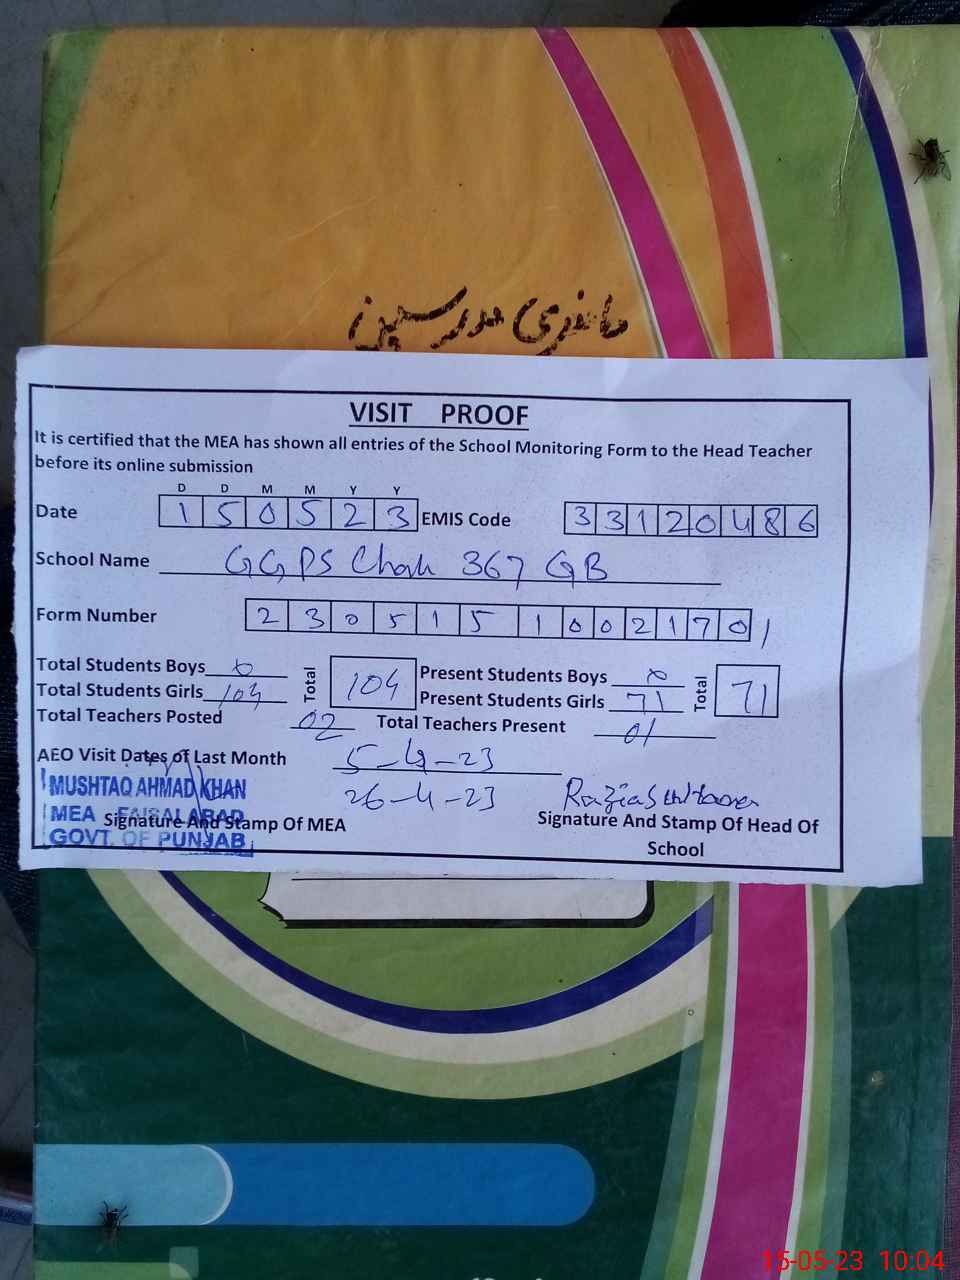 حاضری مدرسین
VISIT PROOF
It is certified that the MEA has shown all entries of the School Monitoring Form to the Head Teacher
before its online submission
D D M M Y Y
Date 1 5 0 5 2 3 EMIS Code 3 3 1 2 0 4 8 6
School Name GGPS Chak 367 GB
Form Number 2 3 0 5 1 5 1 0 0 2 1 7 0 1
Total Students Boys 0 Total 104 Present Students Boys 0 Total 71
Total Students Girls 104 Present Students Girls 71
Total Teachers Posted 02 Total Teachers Present 01
AEO Visit Dates of Last Month 5-4-23
26-4-23
MUSHTAQ AHMAD KHAN
MEA FAISALABAD
GOVT. OF PUNJAB
Signature And Stamp Of MEA
Razia
Signature And Stamp Of Head Of
School
15-05-23 10:04